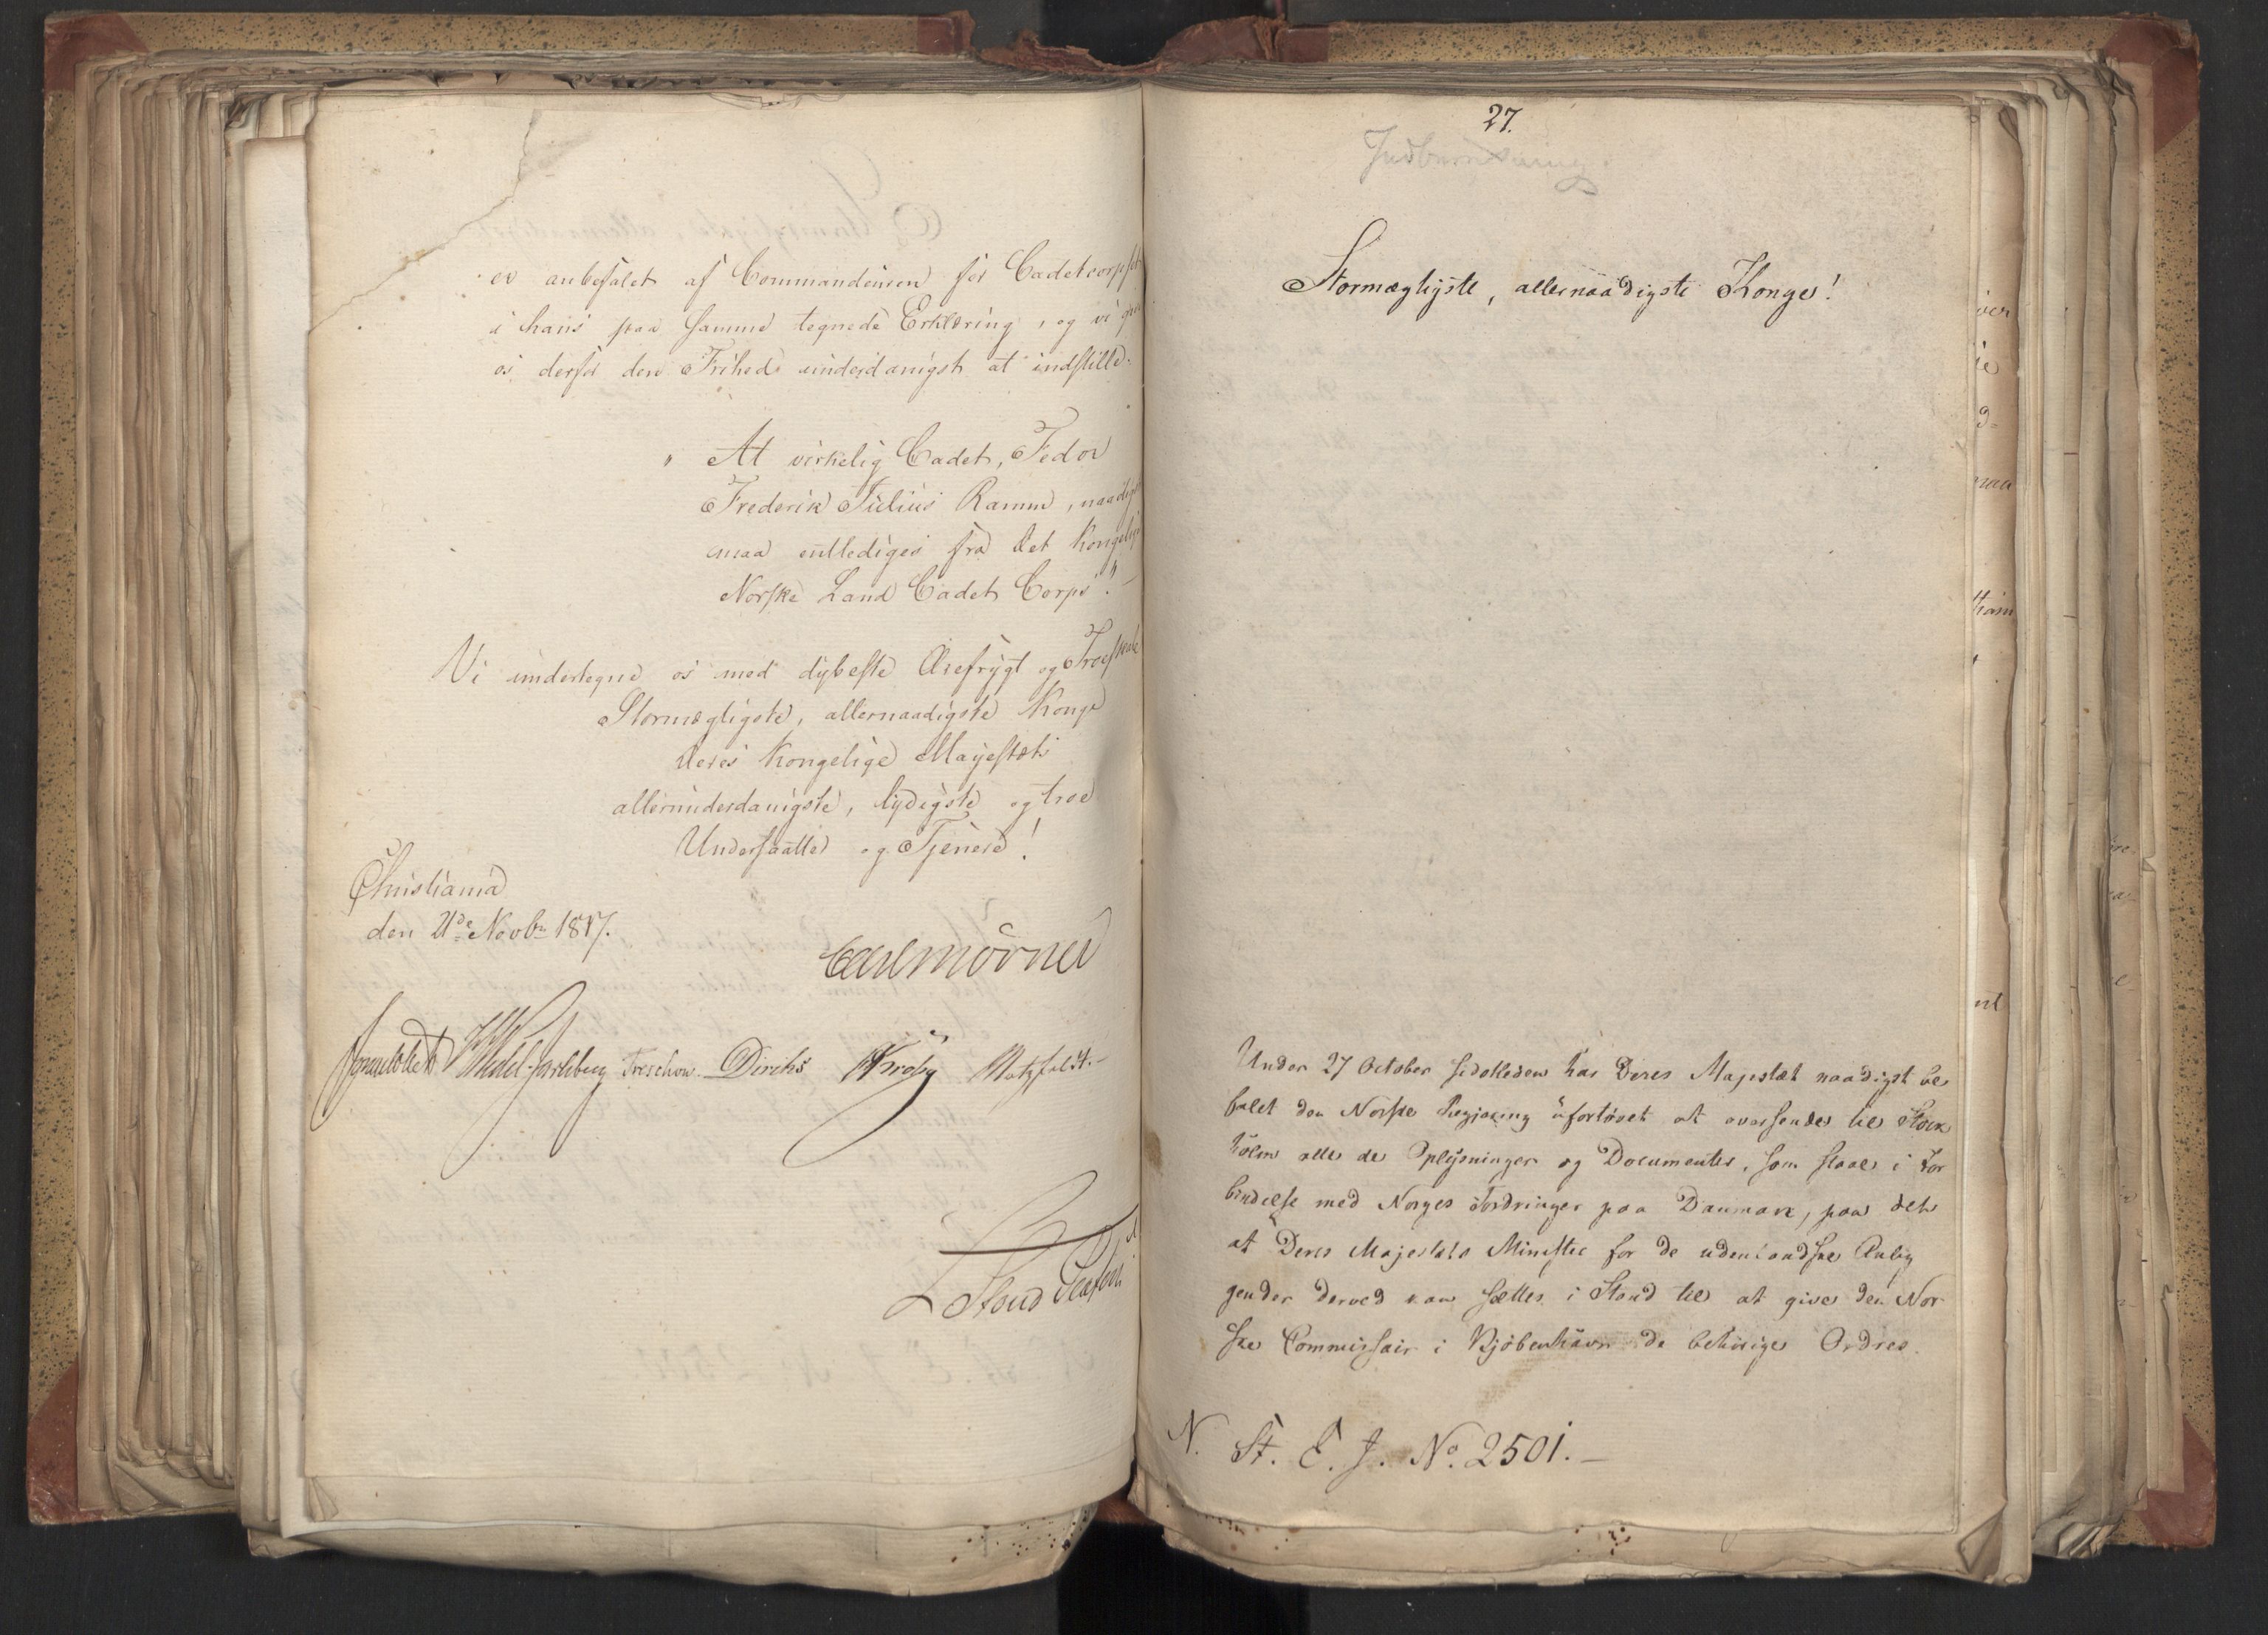 er anbefalet af Commandeuren for Cadetcorpset
i hans paa samme tegnede Erklæring, og vi
os derfor den Frihed underdanigst at indstille.
" At virkelig Cadet, Fedor
Frederik Julius Ramm, naadigst
maa entlediges fra det Kongelige
Norske Land Cadet Corps". –
Vi undertegne os med dybeste Ærefrygt og Troeskab
Stormægtigste, allernaadigste Konge
Deres Kongelige Majestæts
allerunderdanigste, lydigste og troe
Undersaatter og Tjenere!
Christiania
den 21de Novbr 1817.
Carl Mörner
Sommerhielm HWedel-Jarlsberg Treschow. Diriks Krog Motzfeldt.
L Stoud Platou
27.
Indberetning
Stormægtigste, allernaadigste Konge!
Under 27 October sidstleden har Deres Majestæt naadigst be
falet den Norske Regjering ufortøvet at oversende til Stock
holm alle de Oplysninger og Documenter, som staae i For
bindelse med Norges Fordringer paa Danmark, paa det
at Deres Majestæts Minister for de udenlandske Anlig
gender derved kan sættes i Stand til at give den Nor
ske Commissair i Kjøbenhavn de behørige Ordres.
N. St. E. J. No. 2501. –